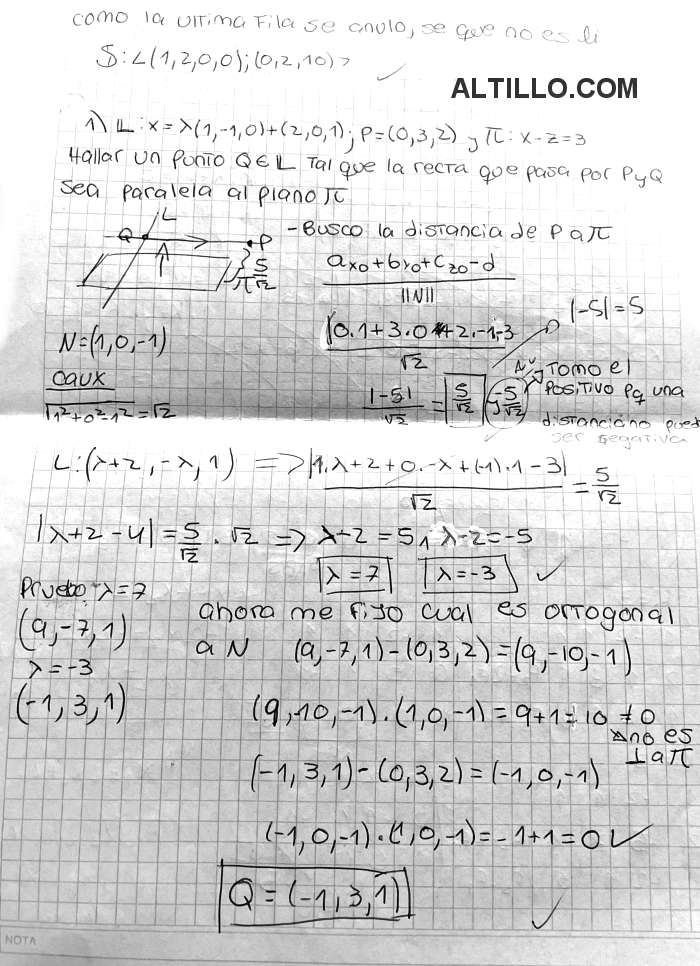 como la ultima Fila se anulo, se que no es li
S:<(1,2,0,0);(0,2,10)>
ALTILLO.COM
1) L: x=λ(1,-1,0)+(2,0,1); P=(0,3,2) y π: x-z=3
Hallar un punto Q∈L Tal que la recta que pasa por P y Q
sea paralela al plano π
L
Q
P
5/√2
π
-Busco la distancia de P a π
ax0+by0+cz0-d
||N||
N=(1,0,-1)
|0.1+3.0+2.-1-3
√2
|-5|=5
caux
√1²+0²-1²=√2
|-5|/√2 = 5/√2 -5/√2
Tomo el
POSITIVO pq una
distancia no pued
ser negativa
L:(λ+2,-λ,1) => |1.λ+2+0.-λ+(-1).1-3|/√2 = 5/√2
|λ+2-4|=5/√2.√2 => λ-2=5 ∧ λ-2=-5
λ=7 λ=-3
Pruebo λ=7
(9,-7,1)
λ=-3
(-1,3,1)
ahora me fijo cual es ortogonal
a N (9,-7,1)-(0,3,2)=(9,-10,-1)
(9,-10,-1).(1,0,-1)=9+1=10≠0
no es
⊥ a π
(-1,3,1)-(0,3,2)=(-1,0,-1)
(-1,0,-1).(1,0,-1)=-1+1=0✓
Q=(-1,3,1)
NOTA